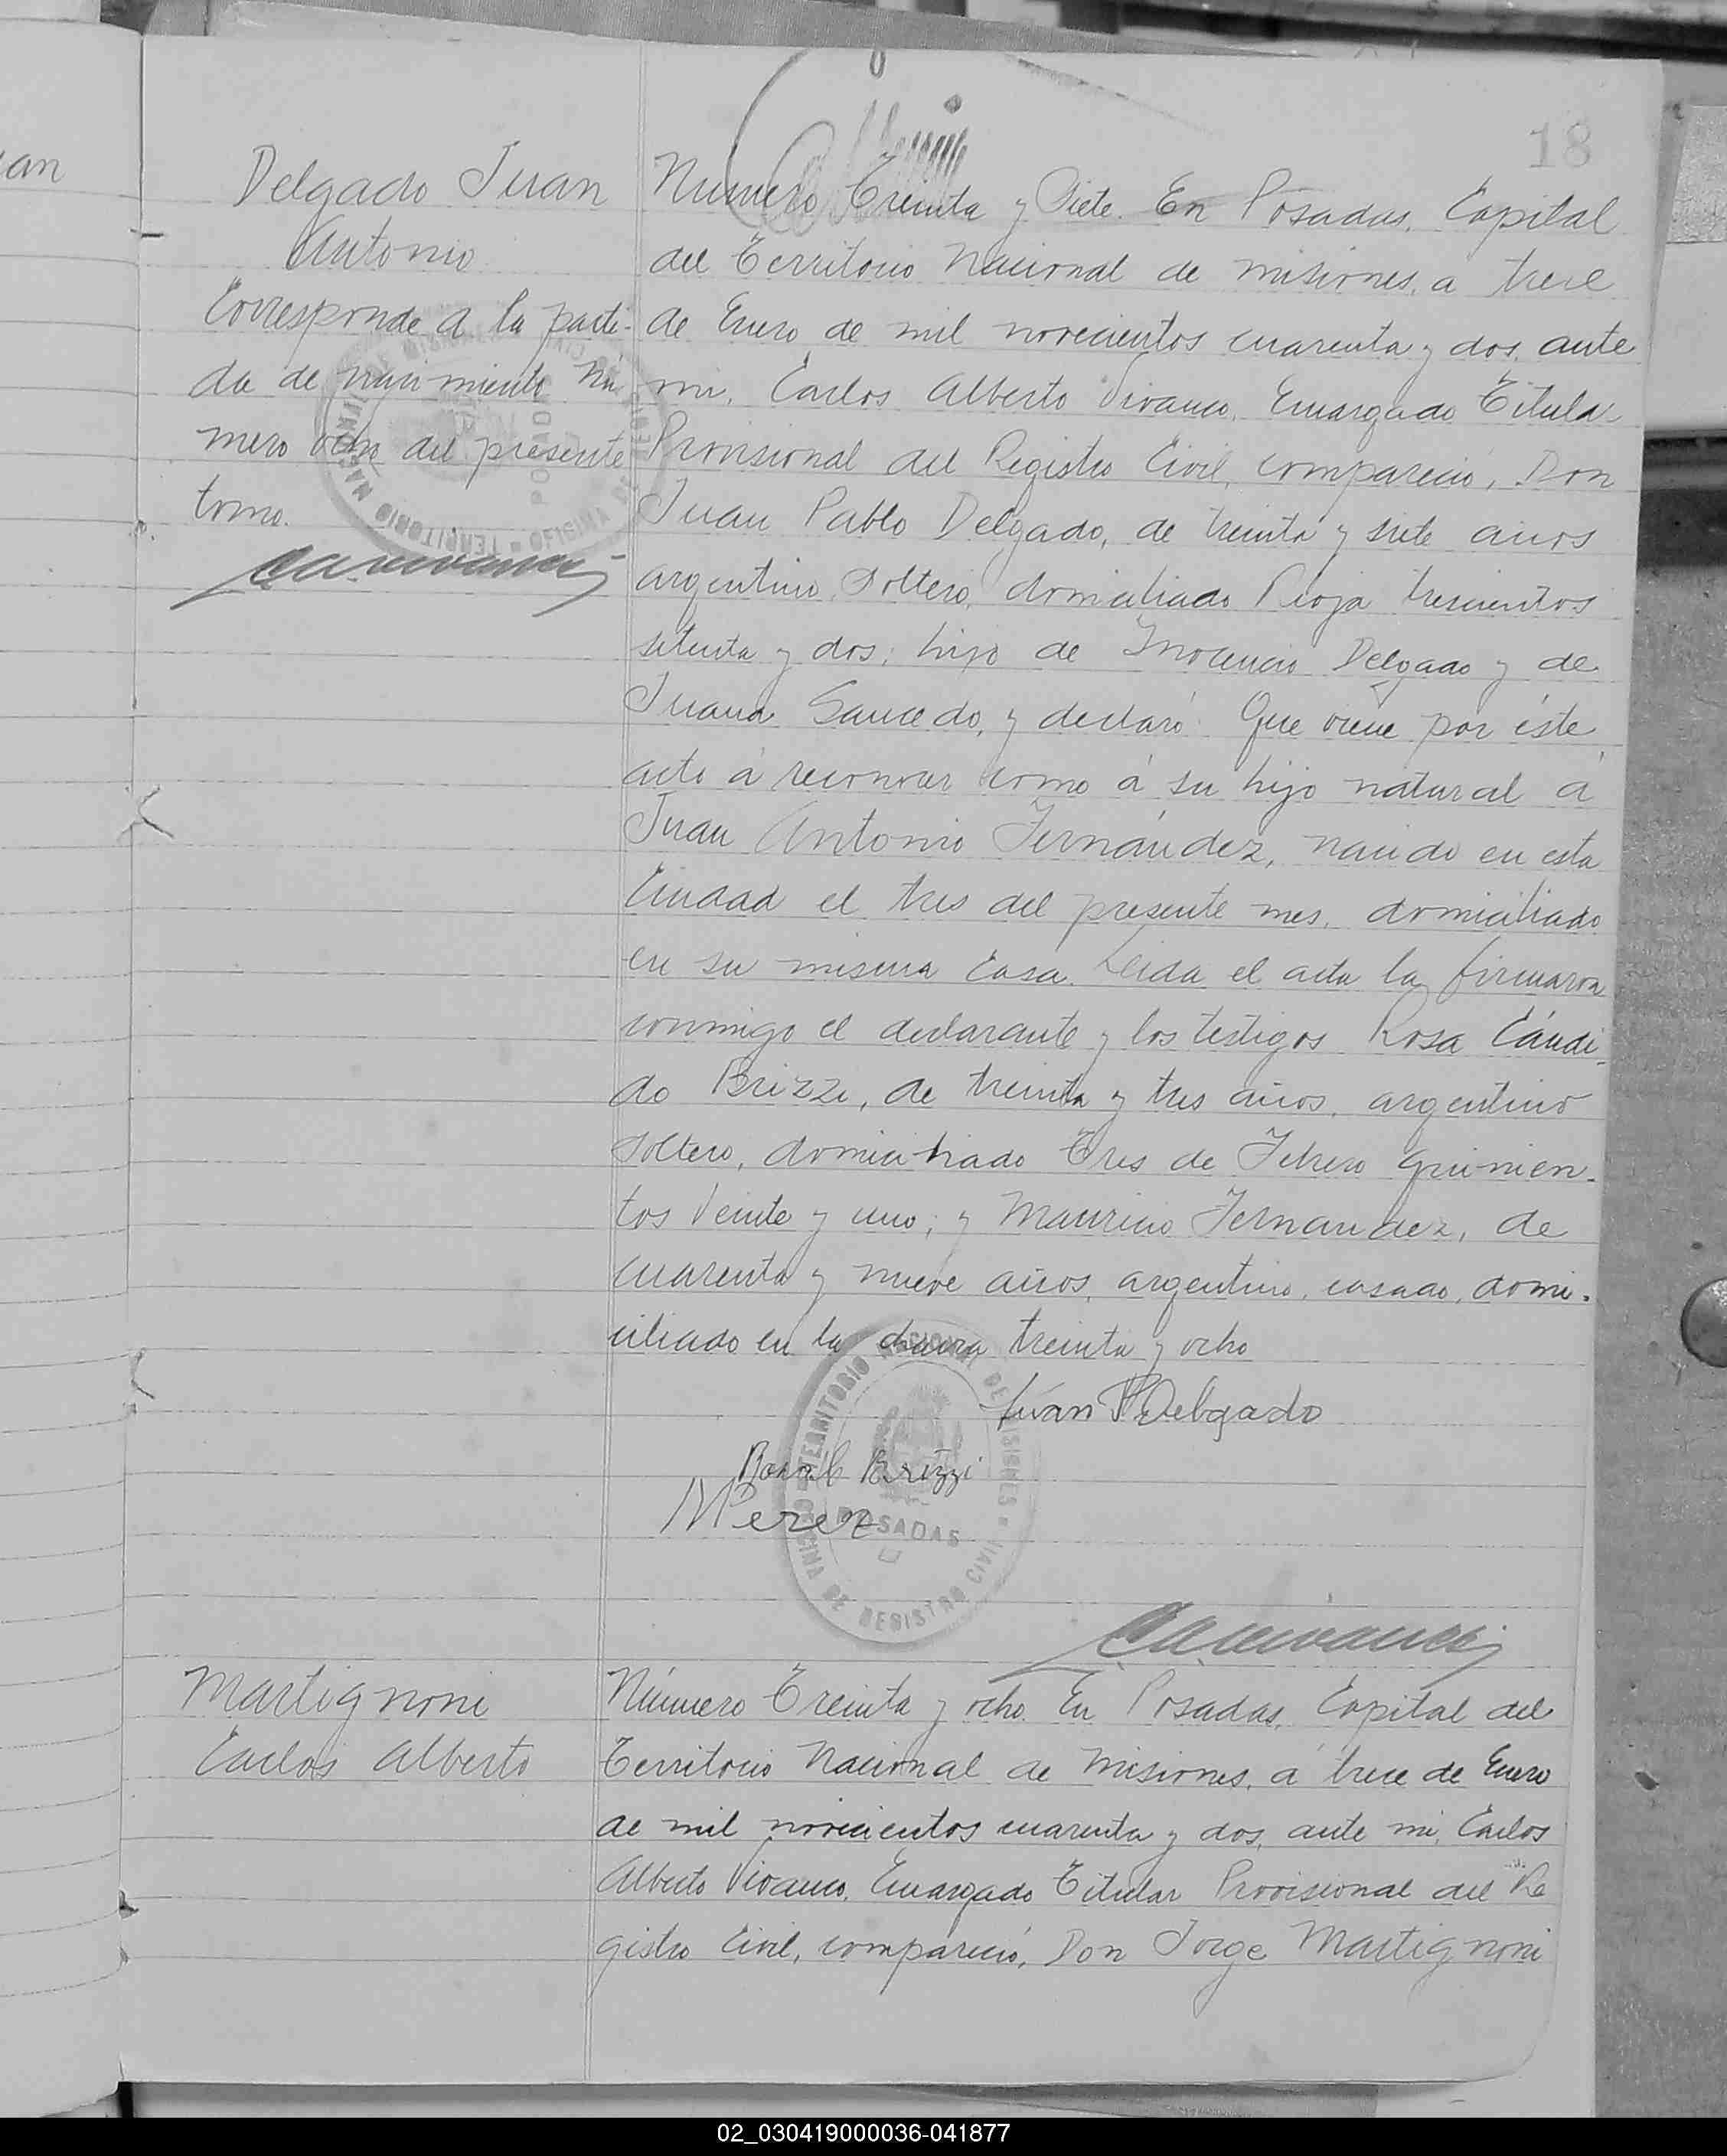 18
an
Delgado Juan
Antonio
Corresponde a la parti-
da de nacimiento nú
mero ocho del presente
tomo.
CAVivanco
Numero Treinta y Siete. En Posadas, Capital
del Territorio Nacional de misiones, a trece
de Enero de mil novecientos cuarenta y dos, ante
mi, Carlos Alberto Vivanco, Encargado Titular
Provisional del Registro Civil, compareció, Don
Juan Pablo Delgado, de treinta y siete años
argentino, Soltero, domiciliado Rioja trescientos
setenta y dos; hijo de Inocencio Delgado y de
Juana Saucedo, y declaró: Que viene por éste
acto á reconocer como á su hijo natural á
Juan Antonio Fernández, nacido en esta
Ciudad el tres del presente mes, domiciliado
en su misma Casa. Leida el acta la firmaron
conmigo el declarante y los testigos Rosa Cándi-
do Brizzi, de treinta y tres años, argentino
soltero, domiciliado Tres de Febrero quinien-
tos Veinte y uno; y Mauricio Fernandez, de
cuarenta y nueve años, argentino, casado, domi-
ciliado en la chacra treinta y ocho
Juan P Delgado
Brizzi
MPerez
TERRITORIO NACIONAL DE MISIONES
POSADAS
OFICINA DE REGISTRO CIVIL
CAVivanco
Martignoni
Carlos Alberto
Número Treinta y ocho. En Posadas, Capital del
Territorio Nacional de Misiones, á trece de Enero
de mil novecientos cuarenta y dos, ante mi, Carlos
Alberto Vivanco, Encargado Titular Provisional del Re
gistro Civil, compareció, Don Jorge Martignoni
02_030419000036-041877